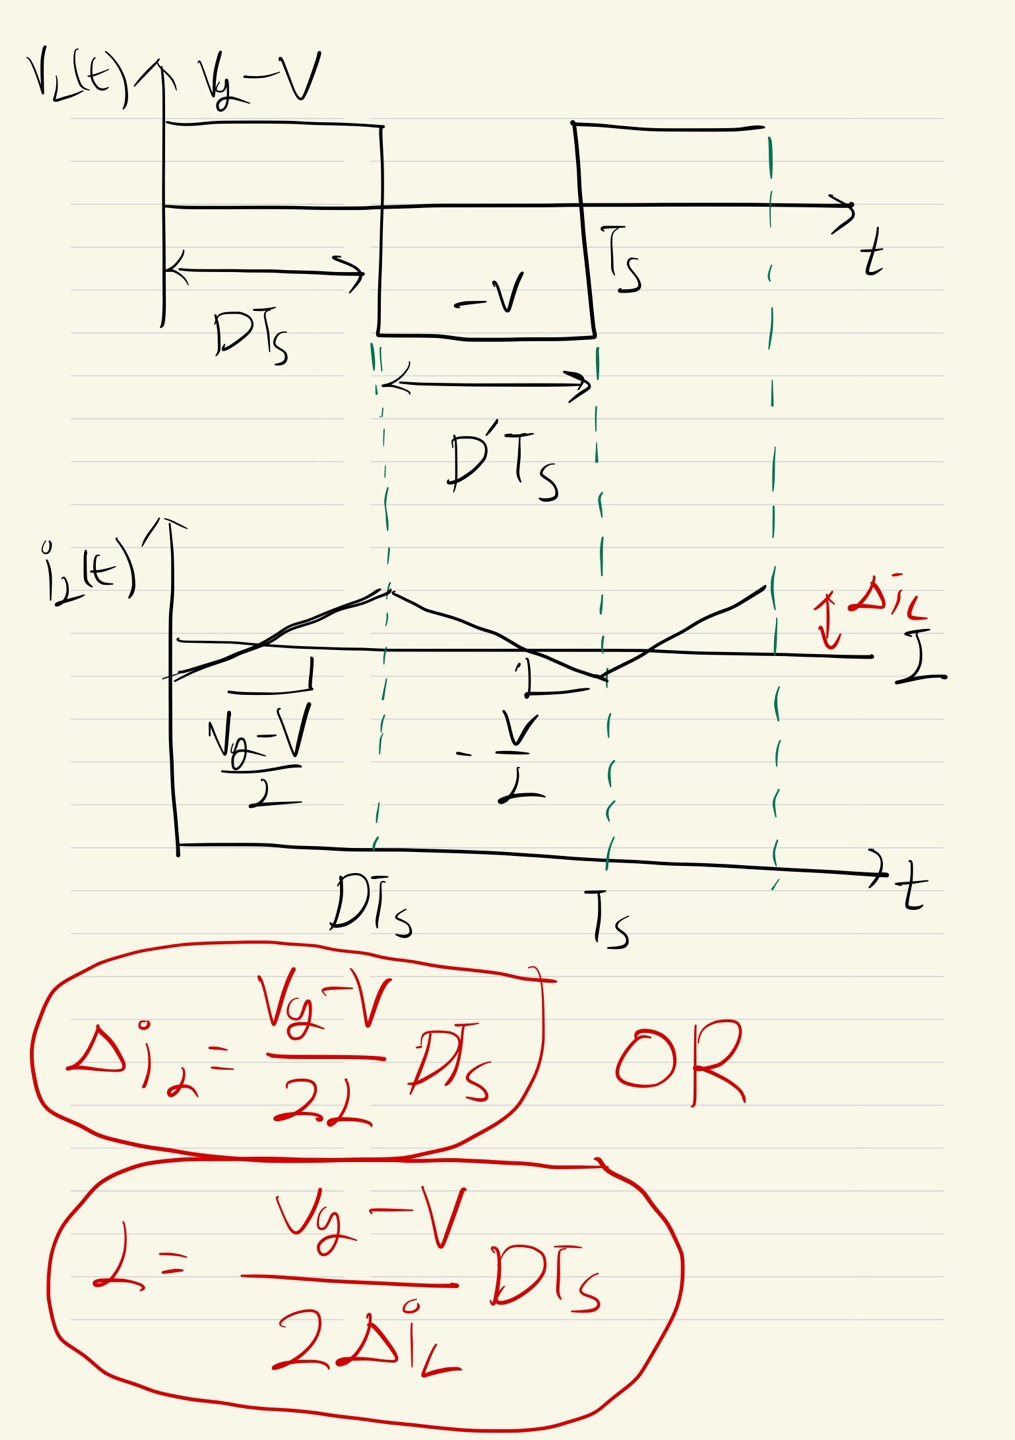 V_L(t) Vg-V
t
T_S
-V
DT_S
D'T_S
i_L(t)
Δi_L
I
Vg-V/L
-V/L
t
DT_S
T_S
Δi_L = Vg-V/2L DT_S OR
L = Vg-V/2Δi_L DT_S